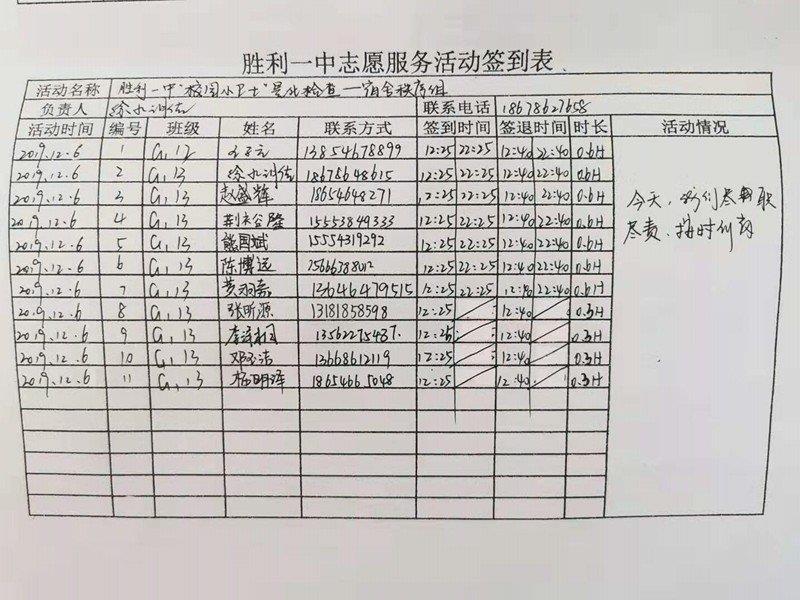 胜利一中志愿服务活动签到表
活动名称 胜利一中"校园小卫士"文明检查—宿舍秩序组
负责人 联系电话 18678627658
活动时间 编号 班级 姓名 联系方式 签到时间 签退时间 时长 活动情况
2019.12.6 1 G,12 13854678899 12:25 22:25 12:40 22:40 0.6H
2019.12.6 2 G,13 18678648615 12:25 22:25 12:40 22:40 0.6H
2019.12.6 3 G,13 赵盛辉 18654648271 12:25 22:25 12:40 22:40 0.6H
2019.12.6 4 G,13 荆谷隆 15553849333 12:25 22:25 12:40 22:40 0.6H
2019.12.6 5 G,13 熊国斌 15554319292 12:25 22:25 12:40 22:40 0.6H
2019.12.6 6 G,13 陈博远 12:25 22:25 12:40 22:40 0.6H
2019.12.6 7 G,13 13646479515 12:25 22:25 12:40 22:40 0.6H
2019.12.6 8 G,13 张昕源 13181858598 12:25 12:40 0.3H
2019.12.6 9 G,13 13562275437 12:25 12:40 0.3H
2019.12.6 10 G,13 邓玉洁 13668612119 12:25 12:40 0.3H
2019.12.6 11 G,13 杨明泽 18654665048 12:25 12:40 0.3H
今天,我们尽职
尽责、按时到岗